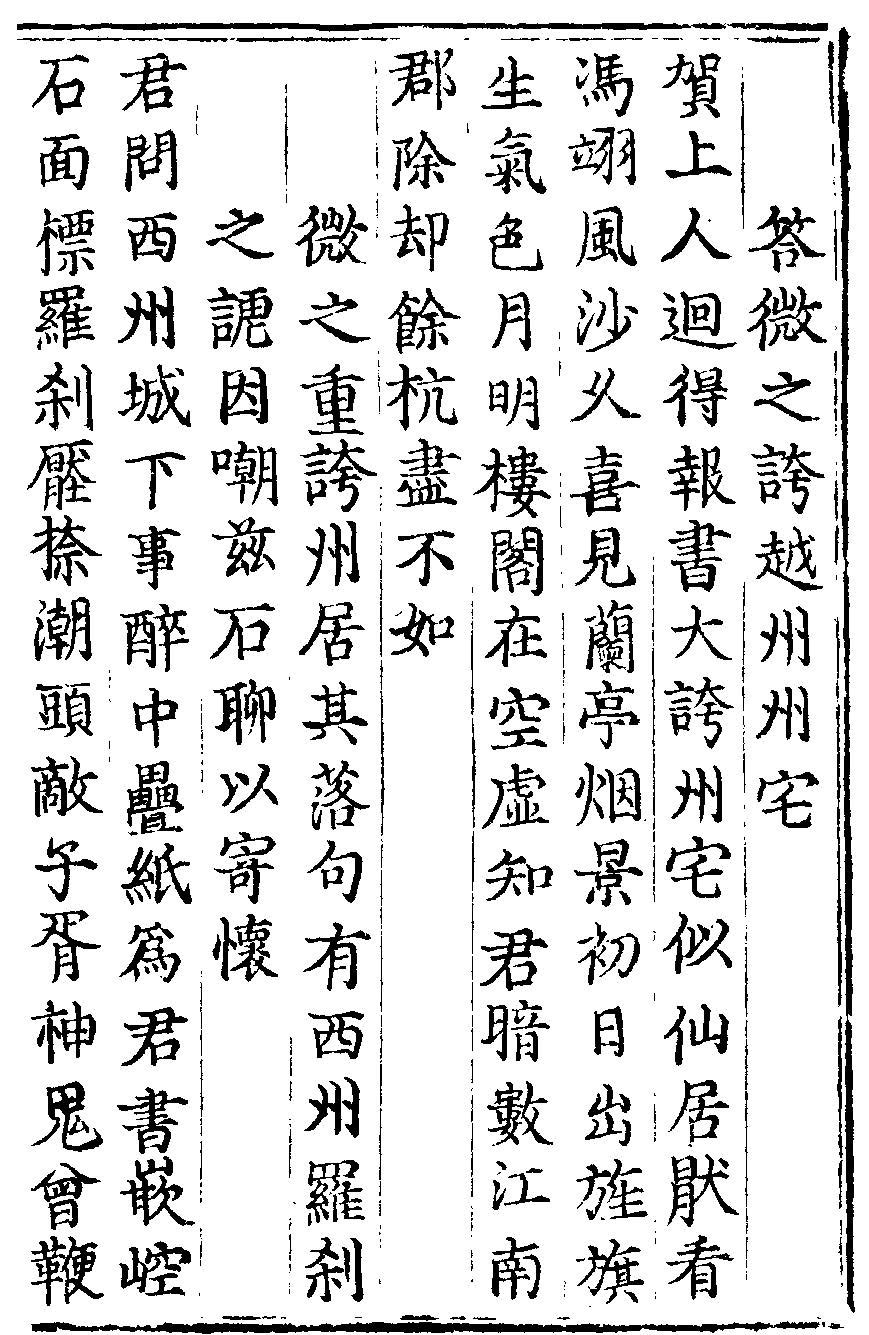 答微之誇越州州宅
賀上人迴得報書大誇州宅似仙居猒看
馮翊風沙久喜見蘭亭烟景初日出旌旗
生氣色月明樓閣在空虛知君暗數江南
郡除却餘杭盡不如
微之重誇州居其落句有西州羅剎
之謔因嘲兹石聊以寄懷
君問西州城下事醉中疊紙爲君書嵌崆
石面標羅剎壓捺潮頭敵子胥神鬼曾鞭